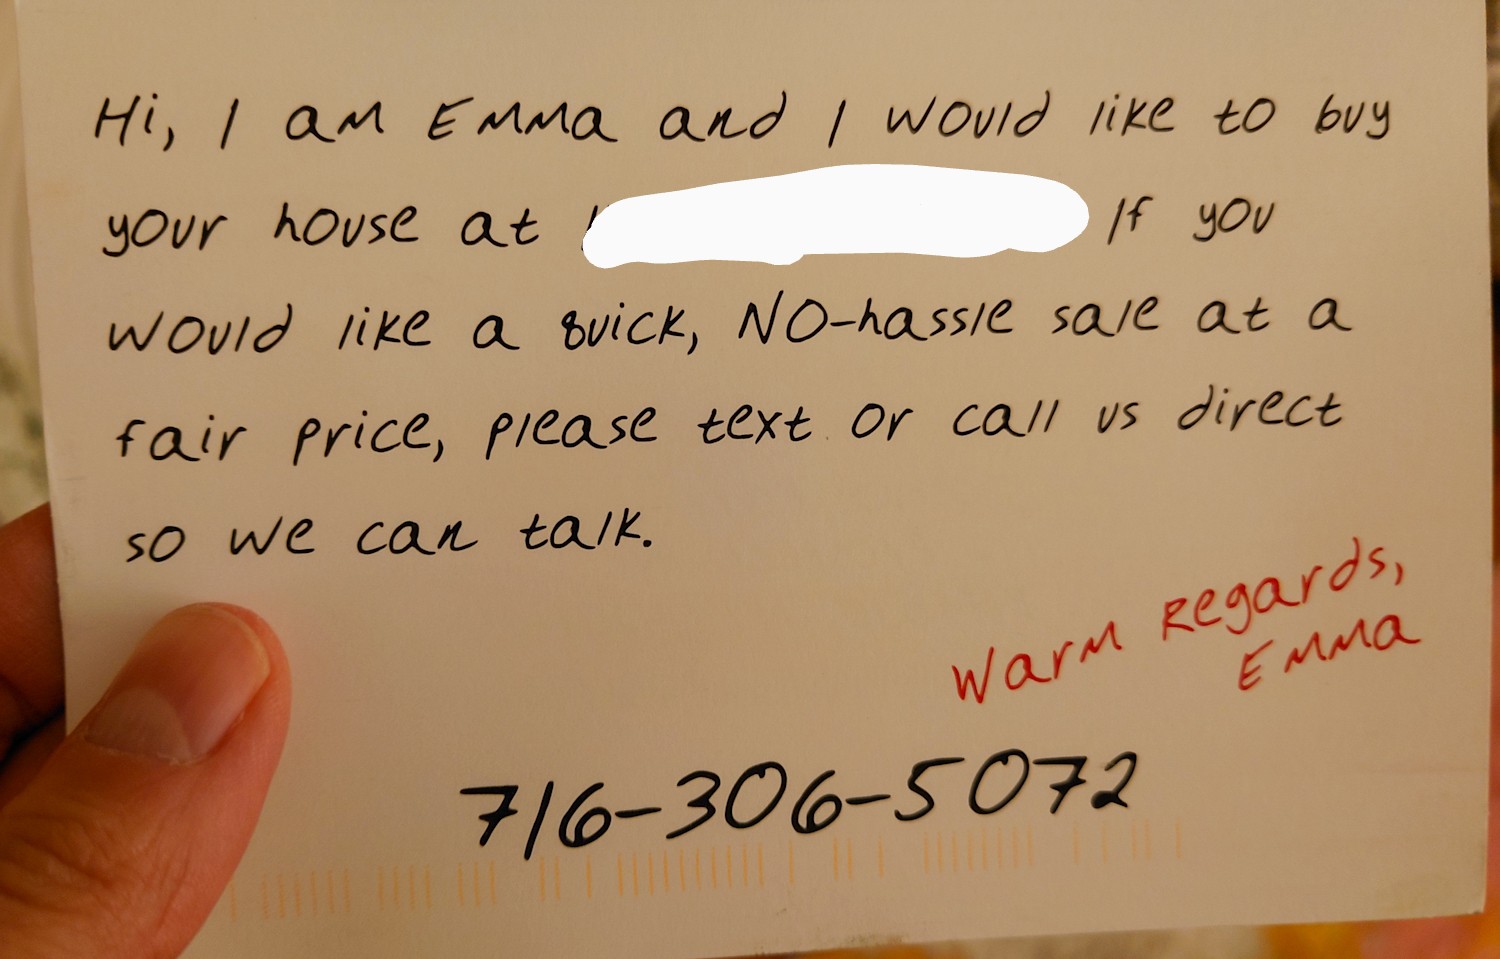 Hi, I am Emma and I would like to buy
your house at
If you
would like a quick, NO-hassle sale at a
fair price, please text or call us direct
so we can talk.
Warm Regards,
Emma
716-306-5072